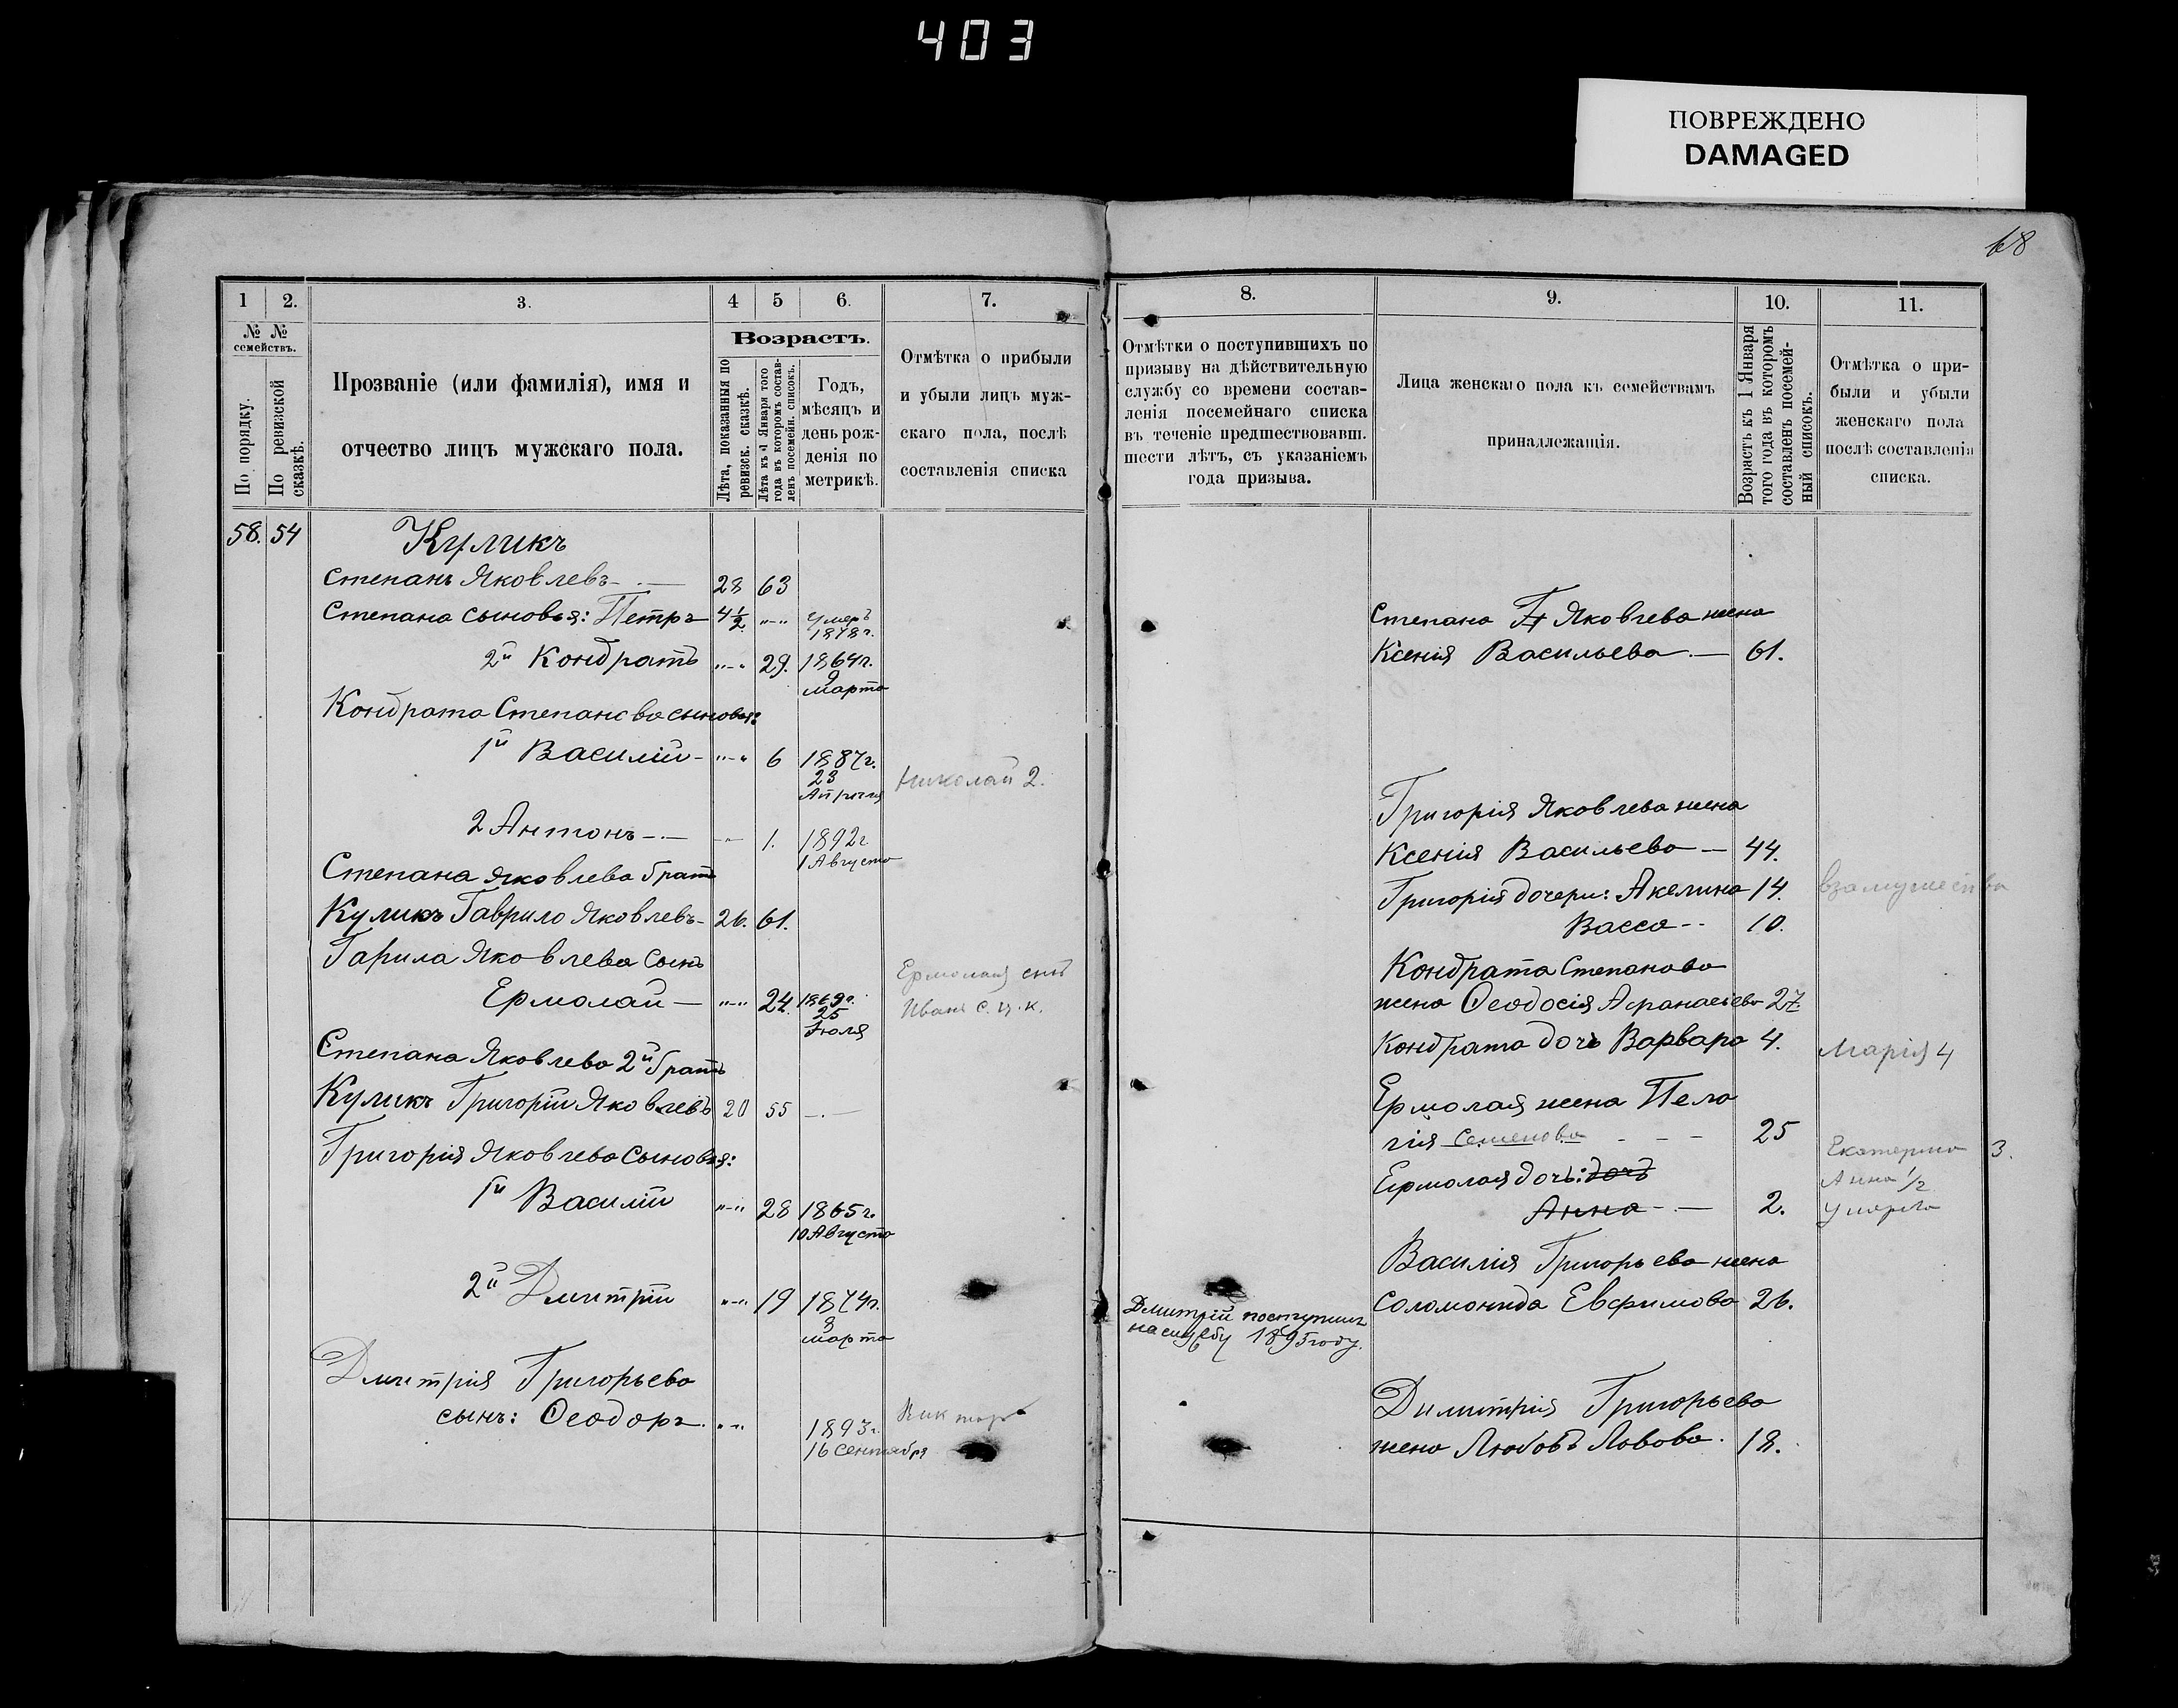 403
ПОВРЕЖДЕНО
DAMAGED
68
1
2.
3.
4
5
6.
7.
№ №
семействъ.
По порядку.
По ревизской
сказкѣ.
Прозваніе (или фамилія), имя и
отчество лицъ мужскаго пола.
Возрастъ.
Лѣта, показанныя по
ревизск. сказкѣ.
Лѣта къ 1 Января того
года въ которомъ состав-
ленъ посемейн. списокъ.
Годъ,
мѣсяцъ и
день рож-
денія по
метрикѣ.
Отмѣтка о прибыли
и убыли лицъ муж-
скаго пола, послѣ
составленія списка
58. 54
Куликъ
Степанъ Яковлевъ 28 63
Степана сыновья: Петръ 4½ "-" Умеръ
1878 г.
2й Кондратъ "-" 29. 1864 г.
9
марта
Кондрата Степанова сыновья:
1й Василій - "-" 6 1887 г.
23
Апрѣля
Николай 2.
2 Антонъ - 1. 1892 г
1 Августа
Степана Яковлева братъ
Куликъ Гаврило Яковлевъ - 26. 61.
Гарила Яковлева сынъ
Ермолай "-" 24. 1869 г.
25
Іюля
Ермолая сынъ
Иванъ
Степана Яковлева 2й братъ
Куликъ Григорій Яковлевъ 20 55
Григорія Яковлева сыновья:
1й Василій "-" 28 1865 г.
10 Августа
2й Дмитрій "-" 19 1874 г.
8
марта
Дмитрія Григорьева
сынъ: Ѳеодоръ. "-" 1893 г.
16 сентября
Викторъ
8.
9.
10.
11.
Отмѣтки о поступившихъ по
призыву на дѣйствительную
службу со времени состав-
ленія посемейнаго списка
въ теченіе предшествовавш.
шести лѣтъ, съ указаніемъ
года призыва.
Лица женскаго пола къ семействамъ
принадлежащія.
Возрастъ къ 1 Января
того года въ которомъ
составленъ посемей-
ный списокъ.
Отмѣтка о при-
были и убыли
женскаго пола
послѣ составленія
списка.
Степана Яковлева жена
Ксенія Васильева. — 61.
Григорія Яковлева жена
Ксенія Васильева — 44.
Григорія дочери: Акелина 14. взамужества
Васса -- 10.
Кондрата Степанова
жена Ѳеодосія Аѳанасіева 27
Кондрата дочь Варвара 4. Марія 4
Ермолая жена Пела
гія Семенова - - - 25
Екатерина 3.
Ермолая дочь: дочь
Анна 1/2
Анна - — 2. умерла
Василія Григорьева жена
Соломонида Евфимова 26.
Дмитрій поступилъ
на службу 1895 году.
Димитрія Григорьева
жена Любовь Львова. 18.